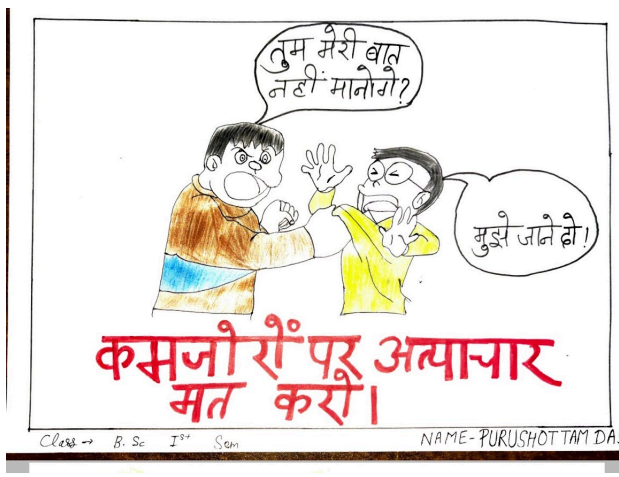 तुम मेरी बात
नहीं मानोगे?
मुझे जाने दो!
कमजोरों पर अत्याचार
मत करो।
Class → B. Sc Ist Sem
NAME- PURUSHOTTAM DAS